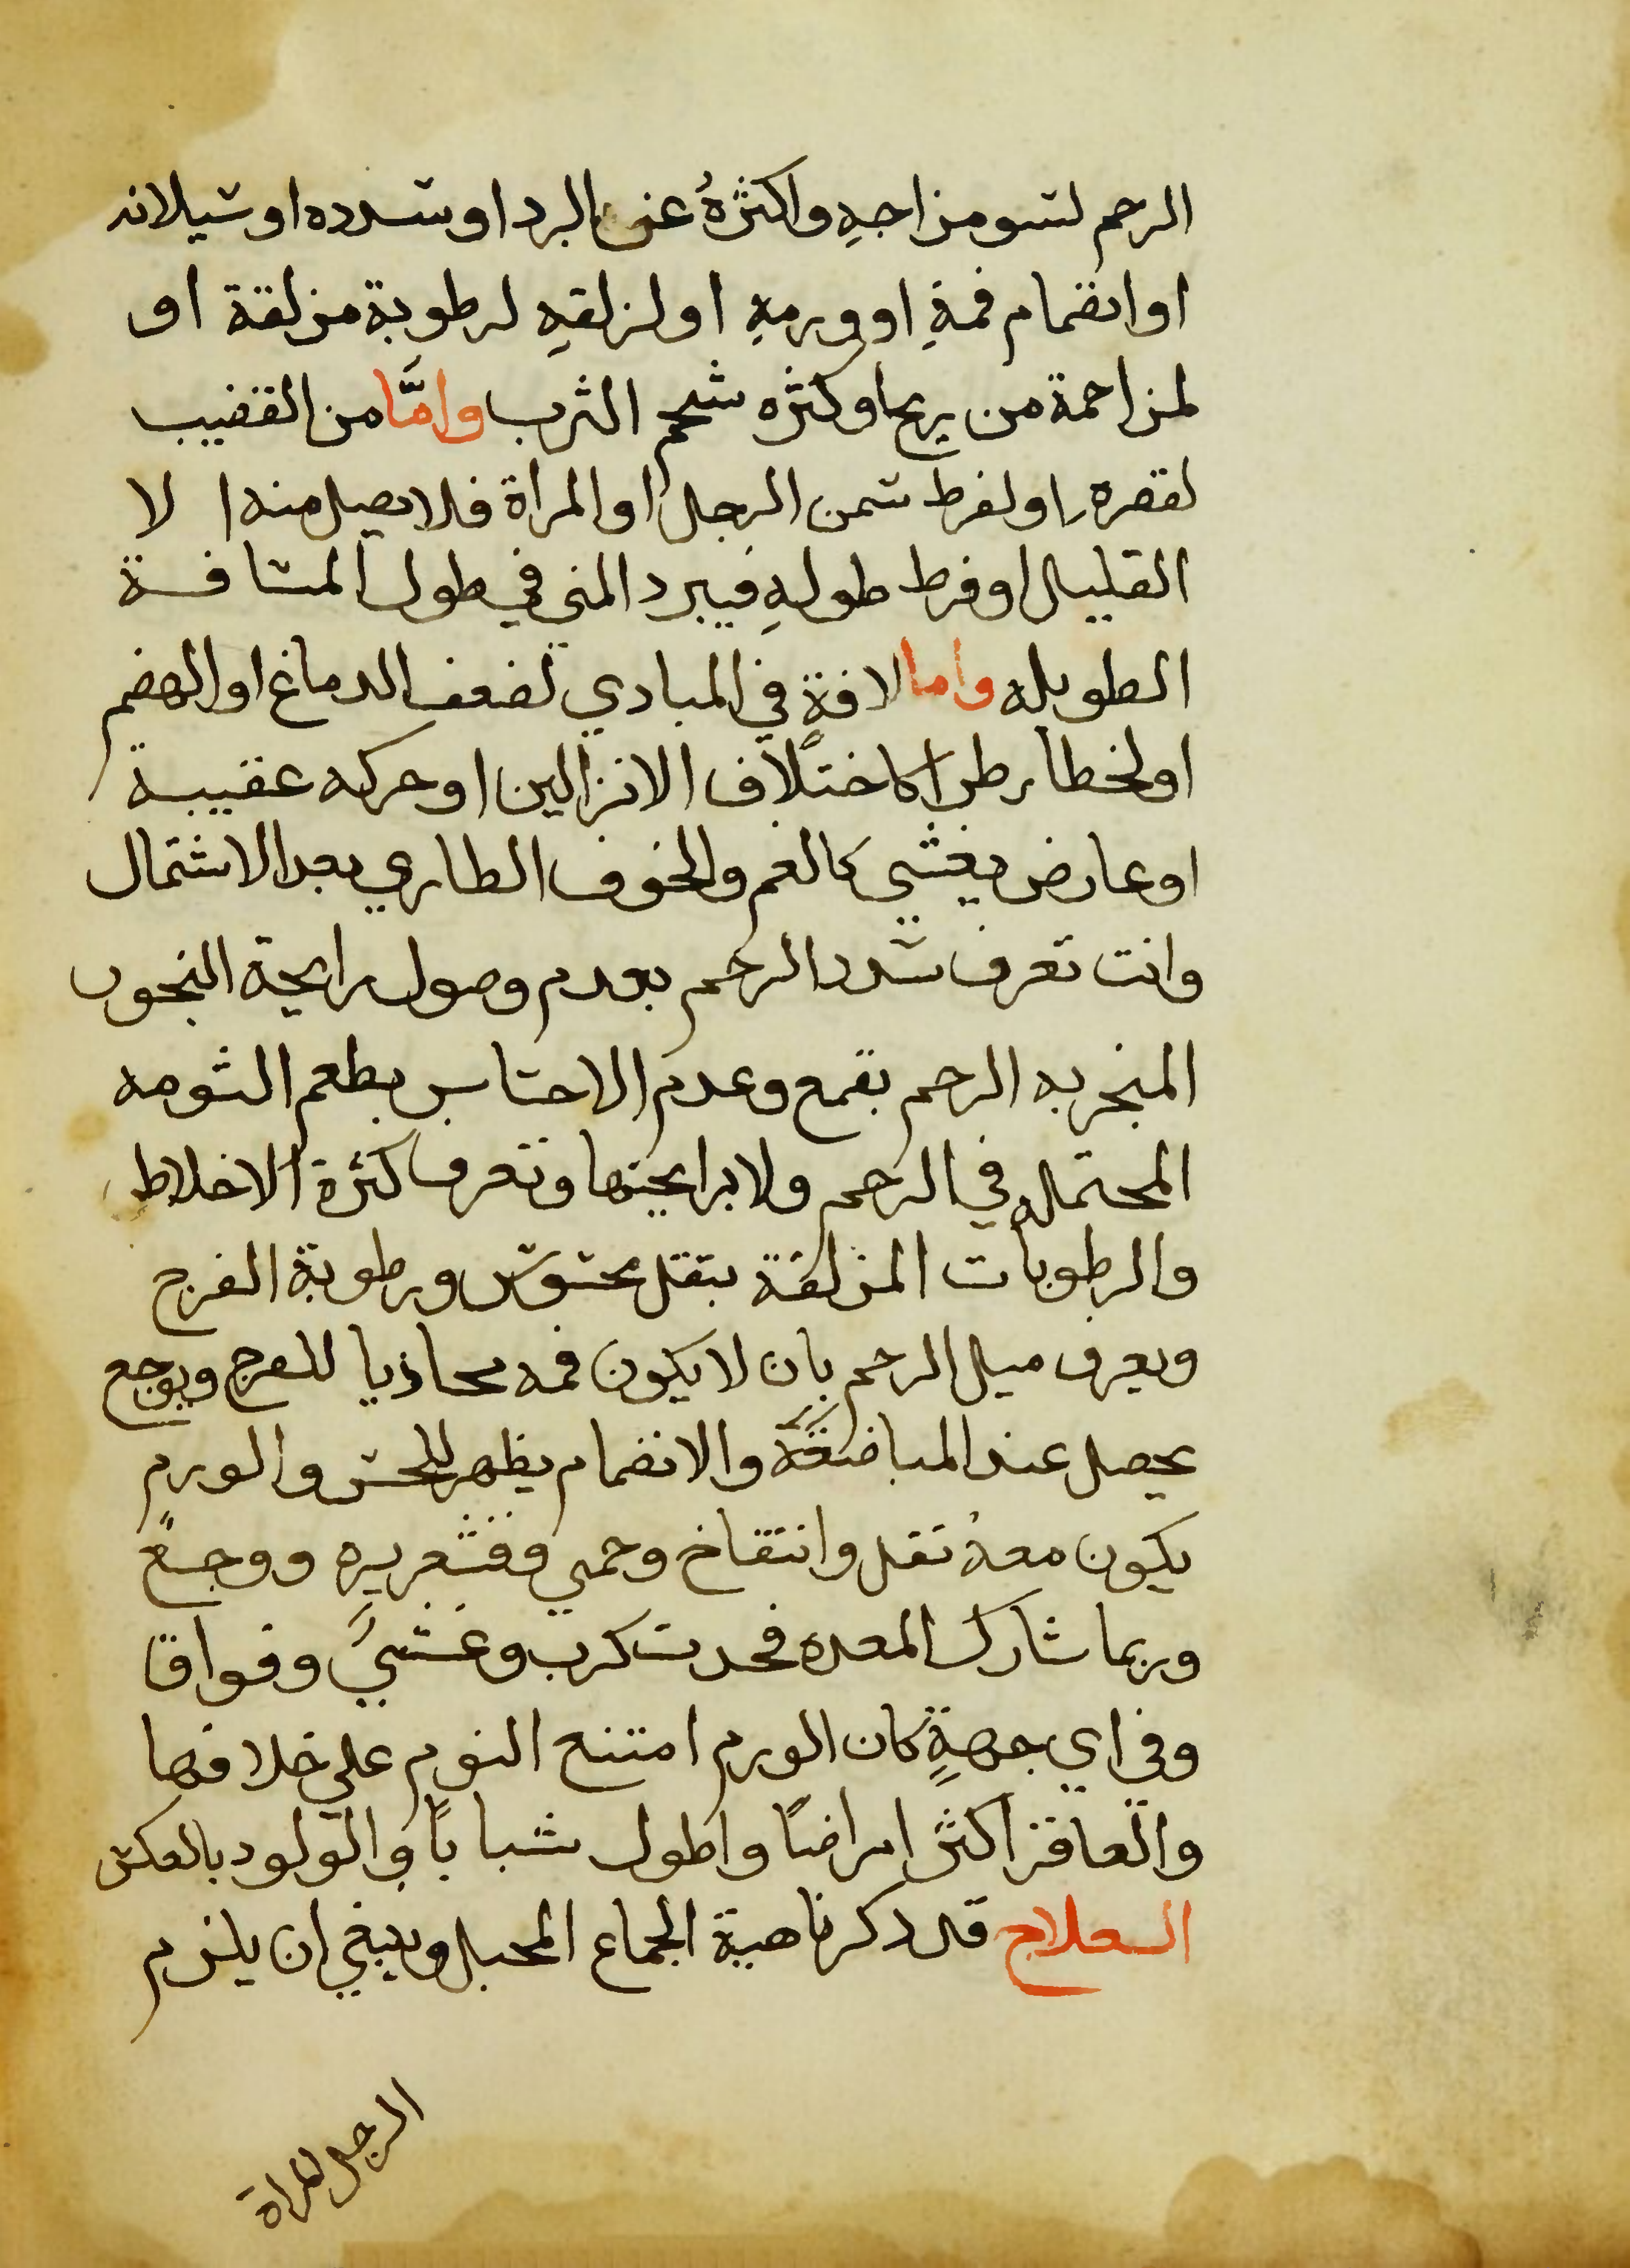 الرحم لسو مزاجهِ واكثرهُ عن البرد او سدده او سيلانه
او انضمام فمهِ او ورمهِ او لزلقهِ لرطوبة مزلقة او
لمزاحمة من ريح او كثره شحم الثرب وامَّا من القضيب
لقصره او لفرط سمن الرجل او المراة فلا يصل منه ا لا
القليل او فرط طولهِ فيبرد المني في طول المسافة
الطويله واما لافةٍ في المبادي لضعف الدماغ او الهضم
او لخطا طرا كاختلاف الانزالين او حركه عقيبة
او عارض نفسي كالغم والخوف الطاري بعد الاشتمال
وانت تعرف سدد الرحم بعدم وصول رايحة البخور
المبخر به الرحم بقمع وعدم الاحساس بطعم الثومه
المحتمله في الرحم ولا برايحتها وتعرف كثرة الاخلاط
والرطوبات المزلقة بثقل محسوس ورطوبة الفرج
ويعرف ميل الرحم بان لا يكون فمه محاذيا للفرج وبوجع
يحصل عند المباضعة والانضمام يظهر للحس والورم
يكون معهُ ثقل وانتفاخ وحمي وقشعريره ووجعً
وربما شارك المعده فحدث كرب وغشيَ وفواق
وفي اي جهةٍ كان الورم امتنع النوم علي خلافها
والعاقر اكثر امراضًا واطول شبابًا والولود بالعكس
العلاج قد ذكرنا هيية الجماع المحبل وينبغي ان يلزم
الرجل للمراة